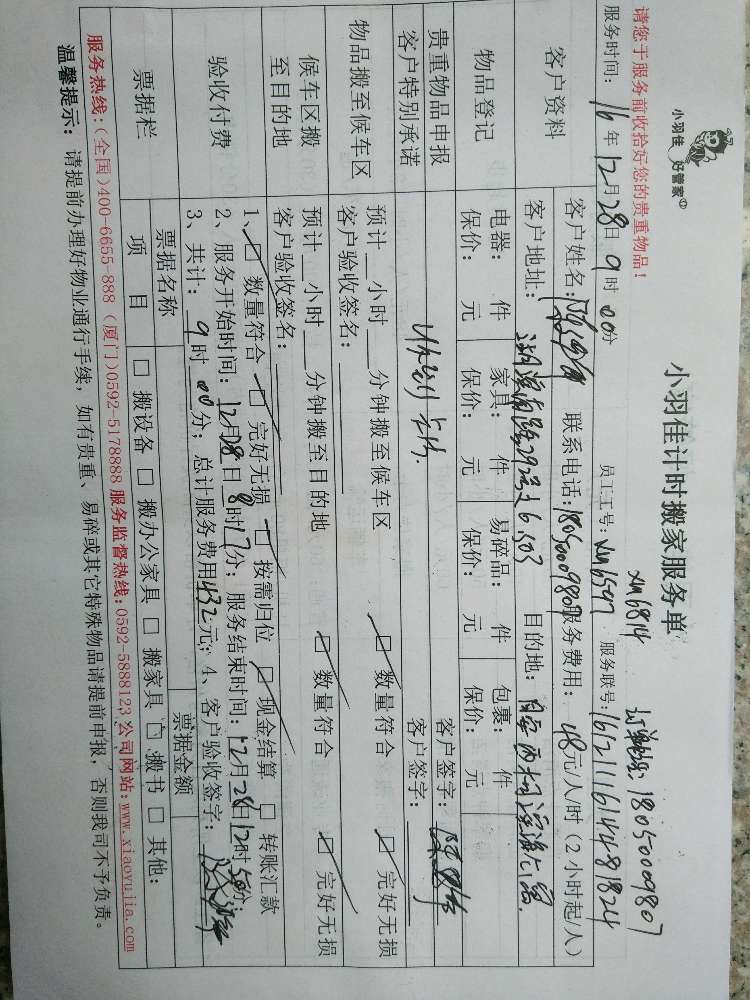 小羽佳 好管家
小羽佳计时搬家服务单
请您于服务前收拾好您的贵重物品!
xm6814 18050009807
服务时间: 16年12月28日9时00分 员工工号: xm6507 服务联号: 16121116144481824
客户资料
客户姓名: 联系电话: 18050009807 服务费用: 48元/人/时(2小时起/人)
客户地址: 湖滨南路 目的地: 同安西柯
物品登记
电器: 件 家具: 件 易碎品: 件 包裹: 件
保价: 元 保价: 元 保价: 元 保价: 元
贵重物品申报 客户签字:
客户特别承诺 客户签字:
物品搬至候车区
预计__小时__分钟搬至候车区 □ 数量符合 □ 完好无损
客户验收签名:
候车区搬至目的地
预计__小时__分钟搬至目的地 □ 数量符合 □ 完好无损
客户验收签名:
验收付费
1、□ 数量符合 □ 完好无损 □ 按需归位 □ 现金结算 □ 转账汇款
2、服务开始时间: 12月28日8时17分; 服务结束时间: 12月28日12时50分;
3、共计: 9时00分; 总计服务费用432元; 4、客户验收签字:
票据栏
票据名称 票据金额
项目 □ 搬设备 □ 搬办公家具 □ 搬家具 □ 搬书 □ 其他:
服务热线:(全国)400-6655-888 (厦门)0592-5178888 服务监督热线:0592-5888123 公司网站:www.xiaoyujia.com
温馨提示: 请提前办理好物业通行手续,如有贵重、易碎或其它特殊物品请提前申报,否则我司不予负责。